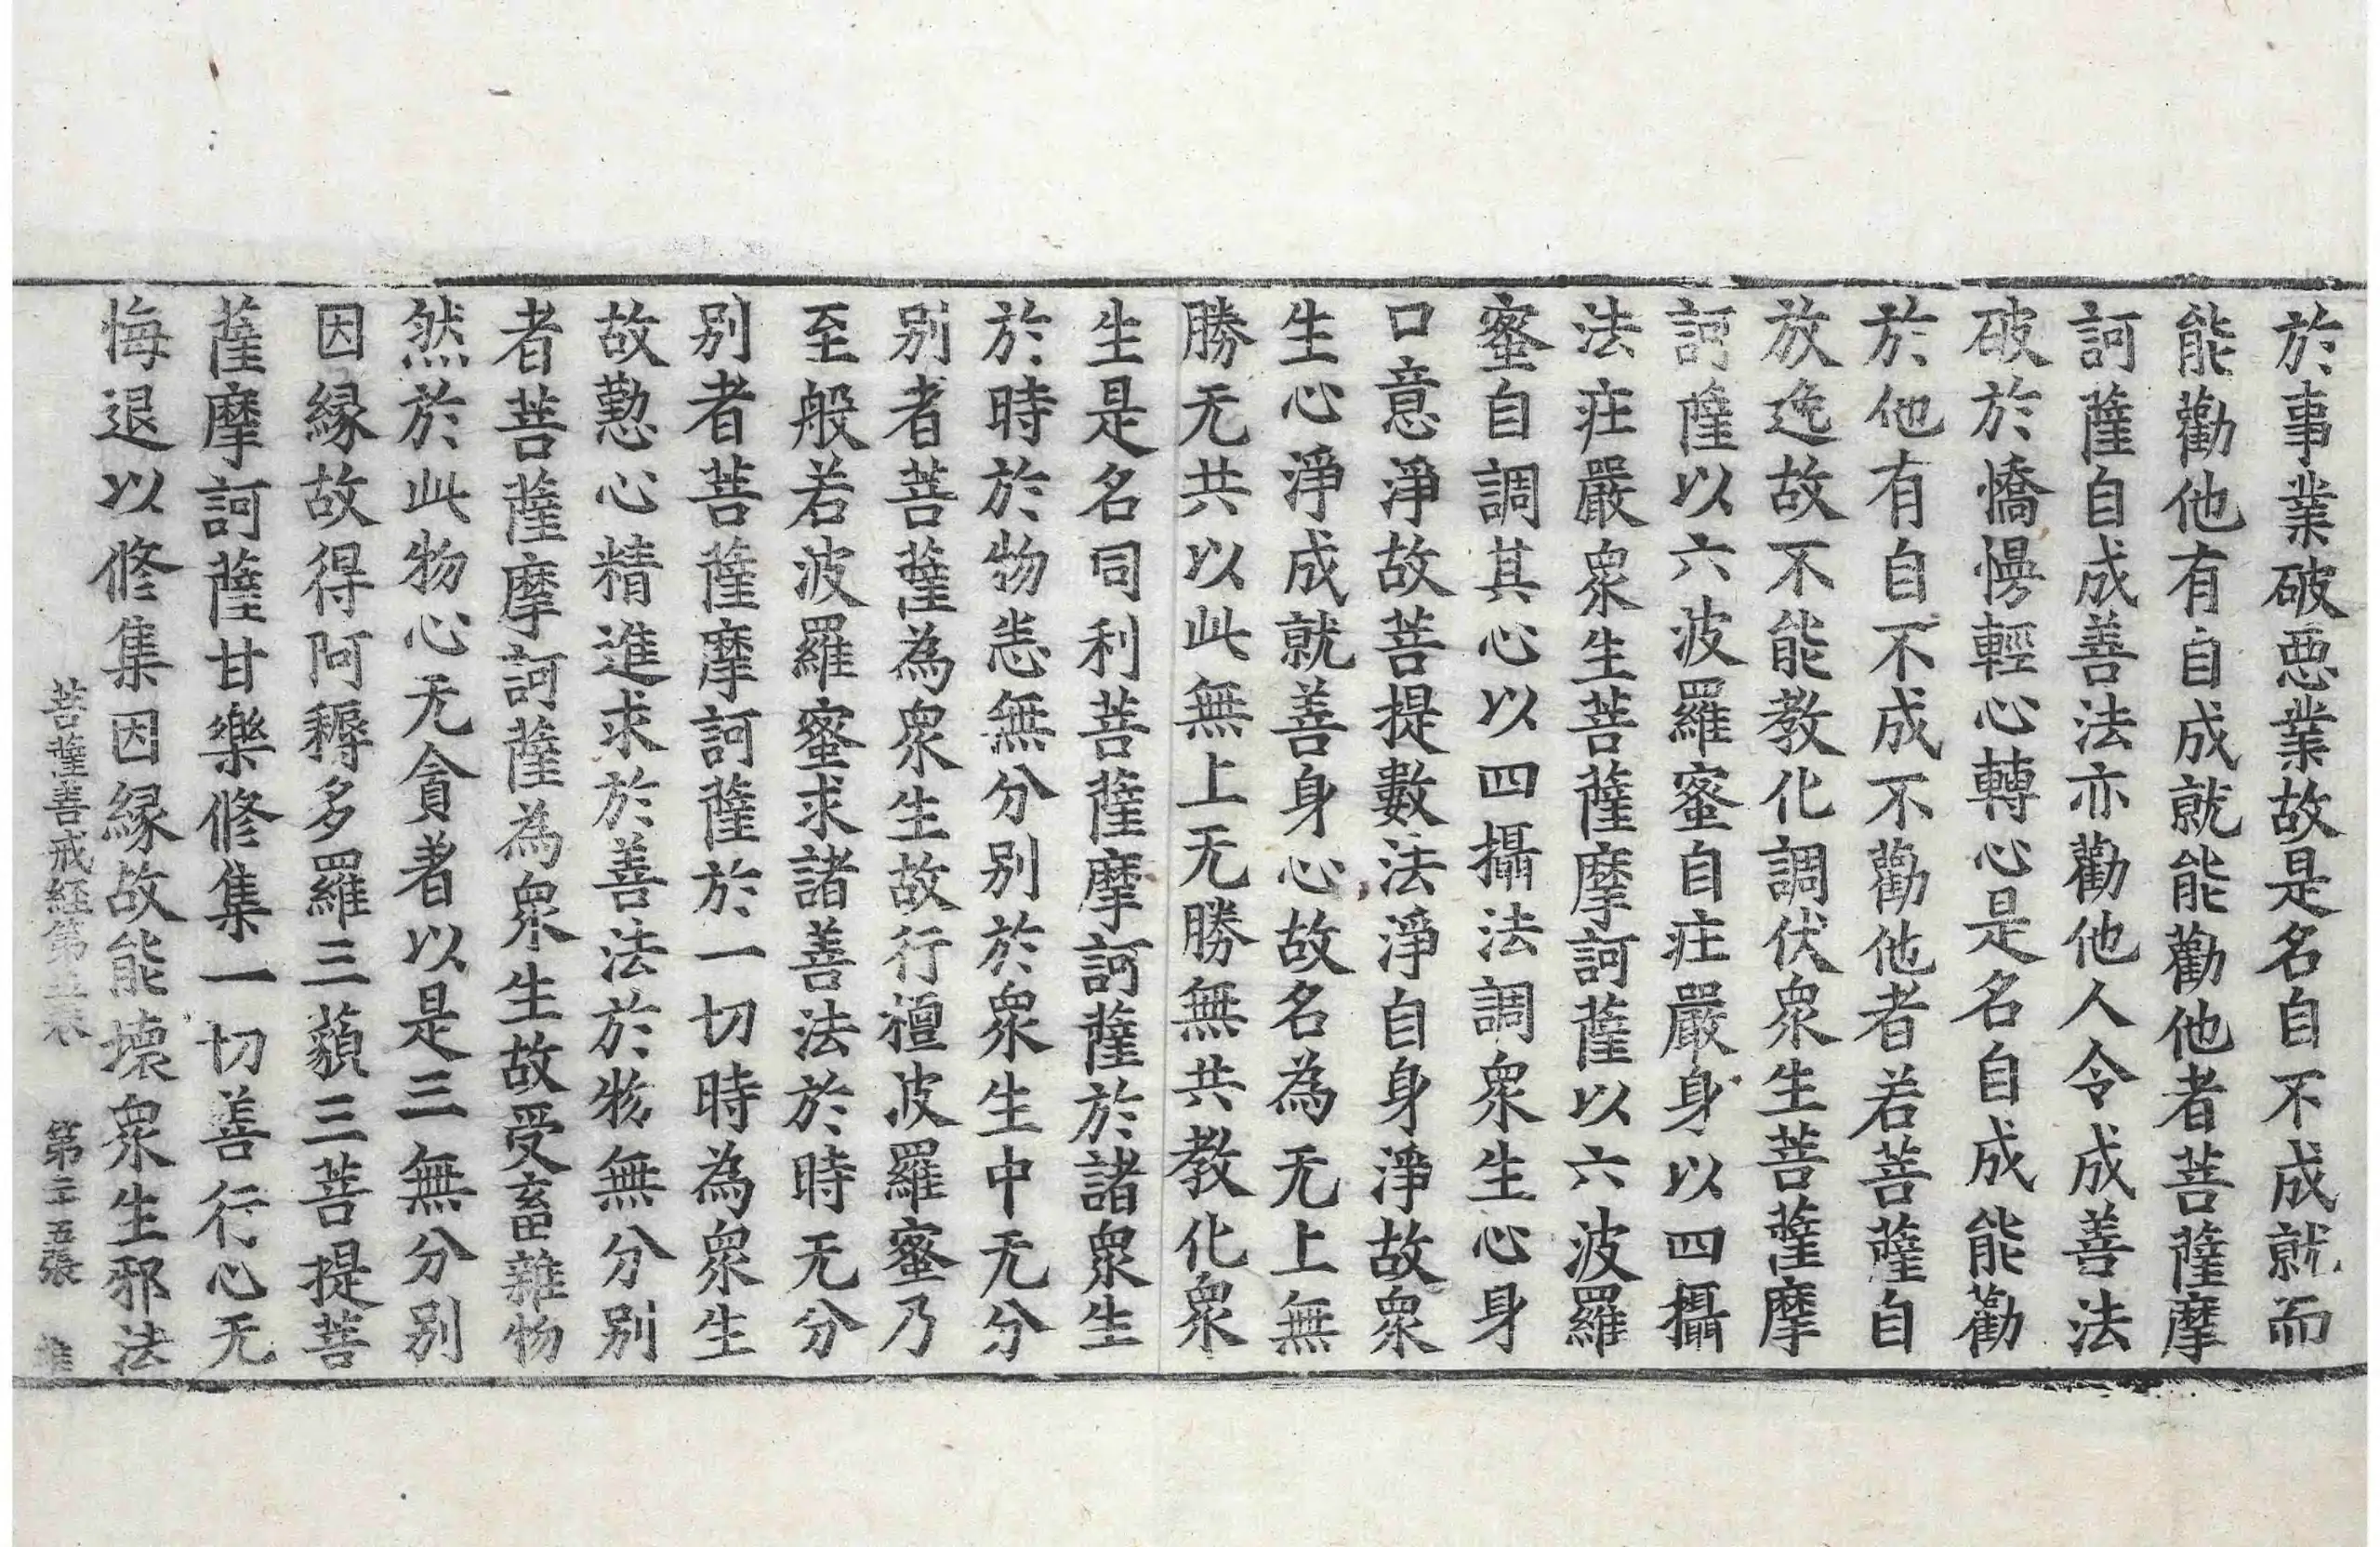 於事業破惡業故是名自不成就而
能勸他有自成就能勸他者菩薩摩
訶薩自成善法亦勸他人令成善法
破於憍慢輕心轉心是名自成能勸
於他有自不成不勸他者若菩薩自
放逸故不能教化調伏衆生菩薩摩
訶薩以六波羅蜜自庄嚴身以四攝
法庄嚴衆生菩薩摩訶薩以六波羅
蜜自調其心以四攝法調衆生心身
口意淨故菩提數法淨自身淨故衆
生心淨成就善身心故名為无上無
勝无共以此無上无勝無共教化衆
生是名同利菩薩摩訶薩於諸衆生
於時於物恙無分别於衆生中无分
别者菩薩為衆生故行檀波羅蜜乃
至般若波羅蜜求諸善法於時无分
别者菩薩摩訶薩於一切時為衆生
故懃心精進求於善法於物無分别
者菩薩摩訶薩為衆生故受畜雜物
然於此物心无貪著以是三無分别
因縁故得阿耨多羅三藐三菩提菩
薩摩訶薩甘樂修集一切善行心无
悔退以修集因縁故能壞衆生邪法
菩薩善戒経第五卷 第二十五張